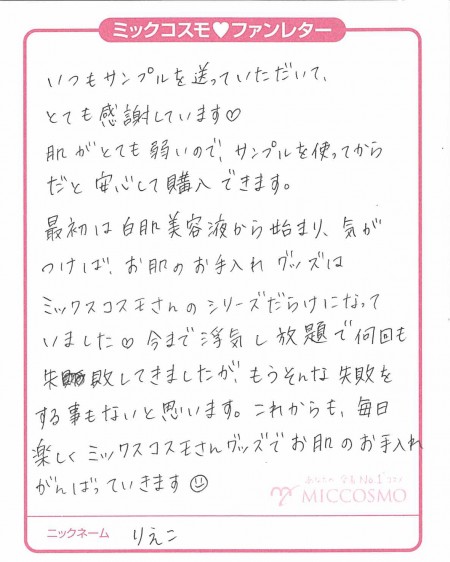 ミックコスモ♥ファンレター
いつもサンプルを送っていただいて、
とても感謝しています♡
肌がとても弱いので、サンプルを使ってから
だと安心して購入できます。
最初は白肌美容液から始まり、気が
つけば、お肌のお手入れグッズは
ミックスコスモさんのシリーズだらけになって
いました♡今まで浮気し放題で何回も
失敗してきましたが、もうそんな失敗を
する事もないと思います。これからも、毎日
楽しくミックスコスモさんグッズでお肌のお手入れ
がんばっていきます☺
MICCOSMO
ニックネーム りえこ